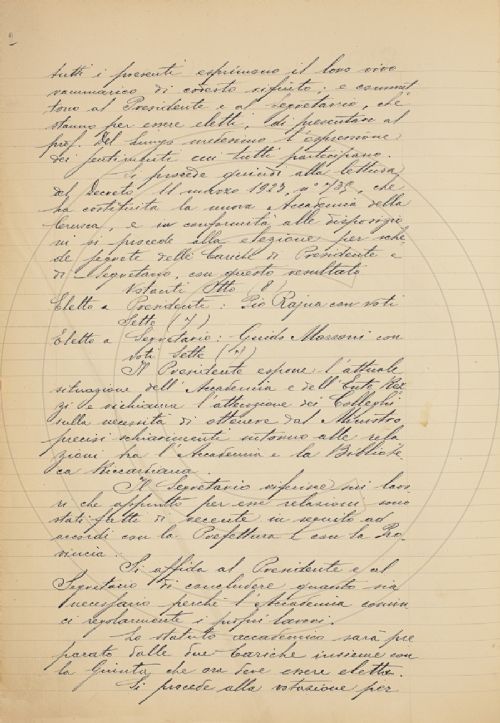 2
tutti i presenti esprimono il loro vivo
rammarico di cotesto rifiuto; e commet
tono al Presidente e al Segretario, che
stanno per essere eletti, di presentare al
prof. Del Lungo medesimo l'espressione
dei sentimenti cui tutti partecipano.
Si procede quindi alla lettura
del Decreto 11 marzo 1923, n° 735, che
ha costituita la nuova Accademia della
Crusca, e in conformità alle disposizio
ni si procede alla elezione per sche
de segrete delle Cariche di Presidente e
di Segretario, con questo resultato
Votanti Otto (8)
Eletto a Presidente: Pio Rajna con voti
Sette (7)
Eletto a Segretario: Guido Mazzoni con
voti Sette (7)
Il Presidente espone l'attuale
situazione dell'Accademia e dell'Ente Rez
zi e richiama l'attenzione dei Colleghi
sulla necessità di ottenere dal Ministro
precisi schiarimenti intorno alle rela
zioni fra l'Accademia e la Bibliote
ca Riccardiana.
Il Segretario riferisce sui lavo
ri che appunto per esse relazioni sono
stati fatti di recente in seguito ad
accordi con la Prefettura e con la Pro
vincia.
Si affida al Presidente e al
Segretario di concludere quanto sia
necessario perchè l'Accademia comin
ci regolarmente i propri lavori.
Lo statuto accademico sarà pre
parato dalle due Cariche insieme con
la Giunta, che ora deve essere eletta.
Si procede alla votazione per